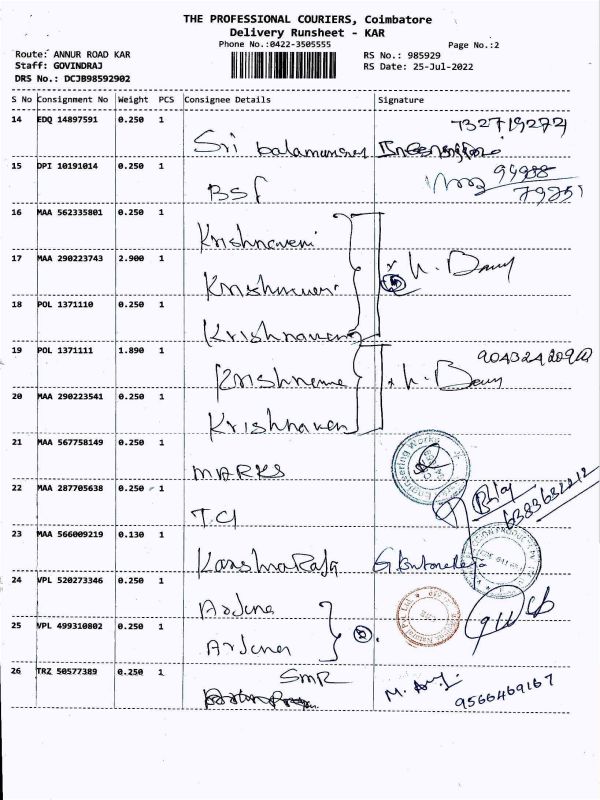 THE PROFESSIONAL COURIERS, Coimbatore
Delivery Runsheet - KAR
Phone No.:0422-3505555
Page No.:2
Route: ANNUR ROAD KAR
Staff: GOVINDRAJ
DRS No.: DCJB98592902
RS No.: 985929
RS Date: 25-Jul-2022
S No Consignment No Weight PCS Consignee Details Signature
14 EDQ 14897591 0.250 1
Sri
15 DPI 10191014 0.250 1
BSF
16 MAA 562335801 0.250 1
Krishnaveni
17 MAA 290223743 2.900 1
Krishnaveni
18 POL 1371110 0.250 1
Krishnaveni
19 POL 1371111 1.890 1
20 MAA 290223541 0.250 1
Krishnaven
21 MAA 567758149 0.250 1
MARKS
Engineering Works
22 MAA 287705638 0.250 1
T.CI
6383632212
23 MAA 566009219 0.130 1
24 VPL 520273346 0.250 1
Arjune
25 VPL 499310802 0.250 1
Arjuner
26 TRZ 50577389 0.250 1
SMR
9566469167